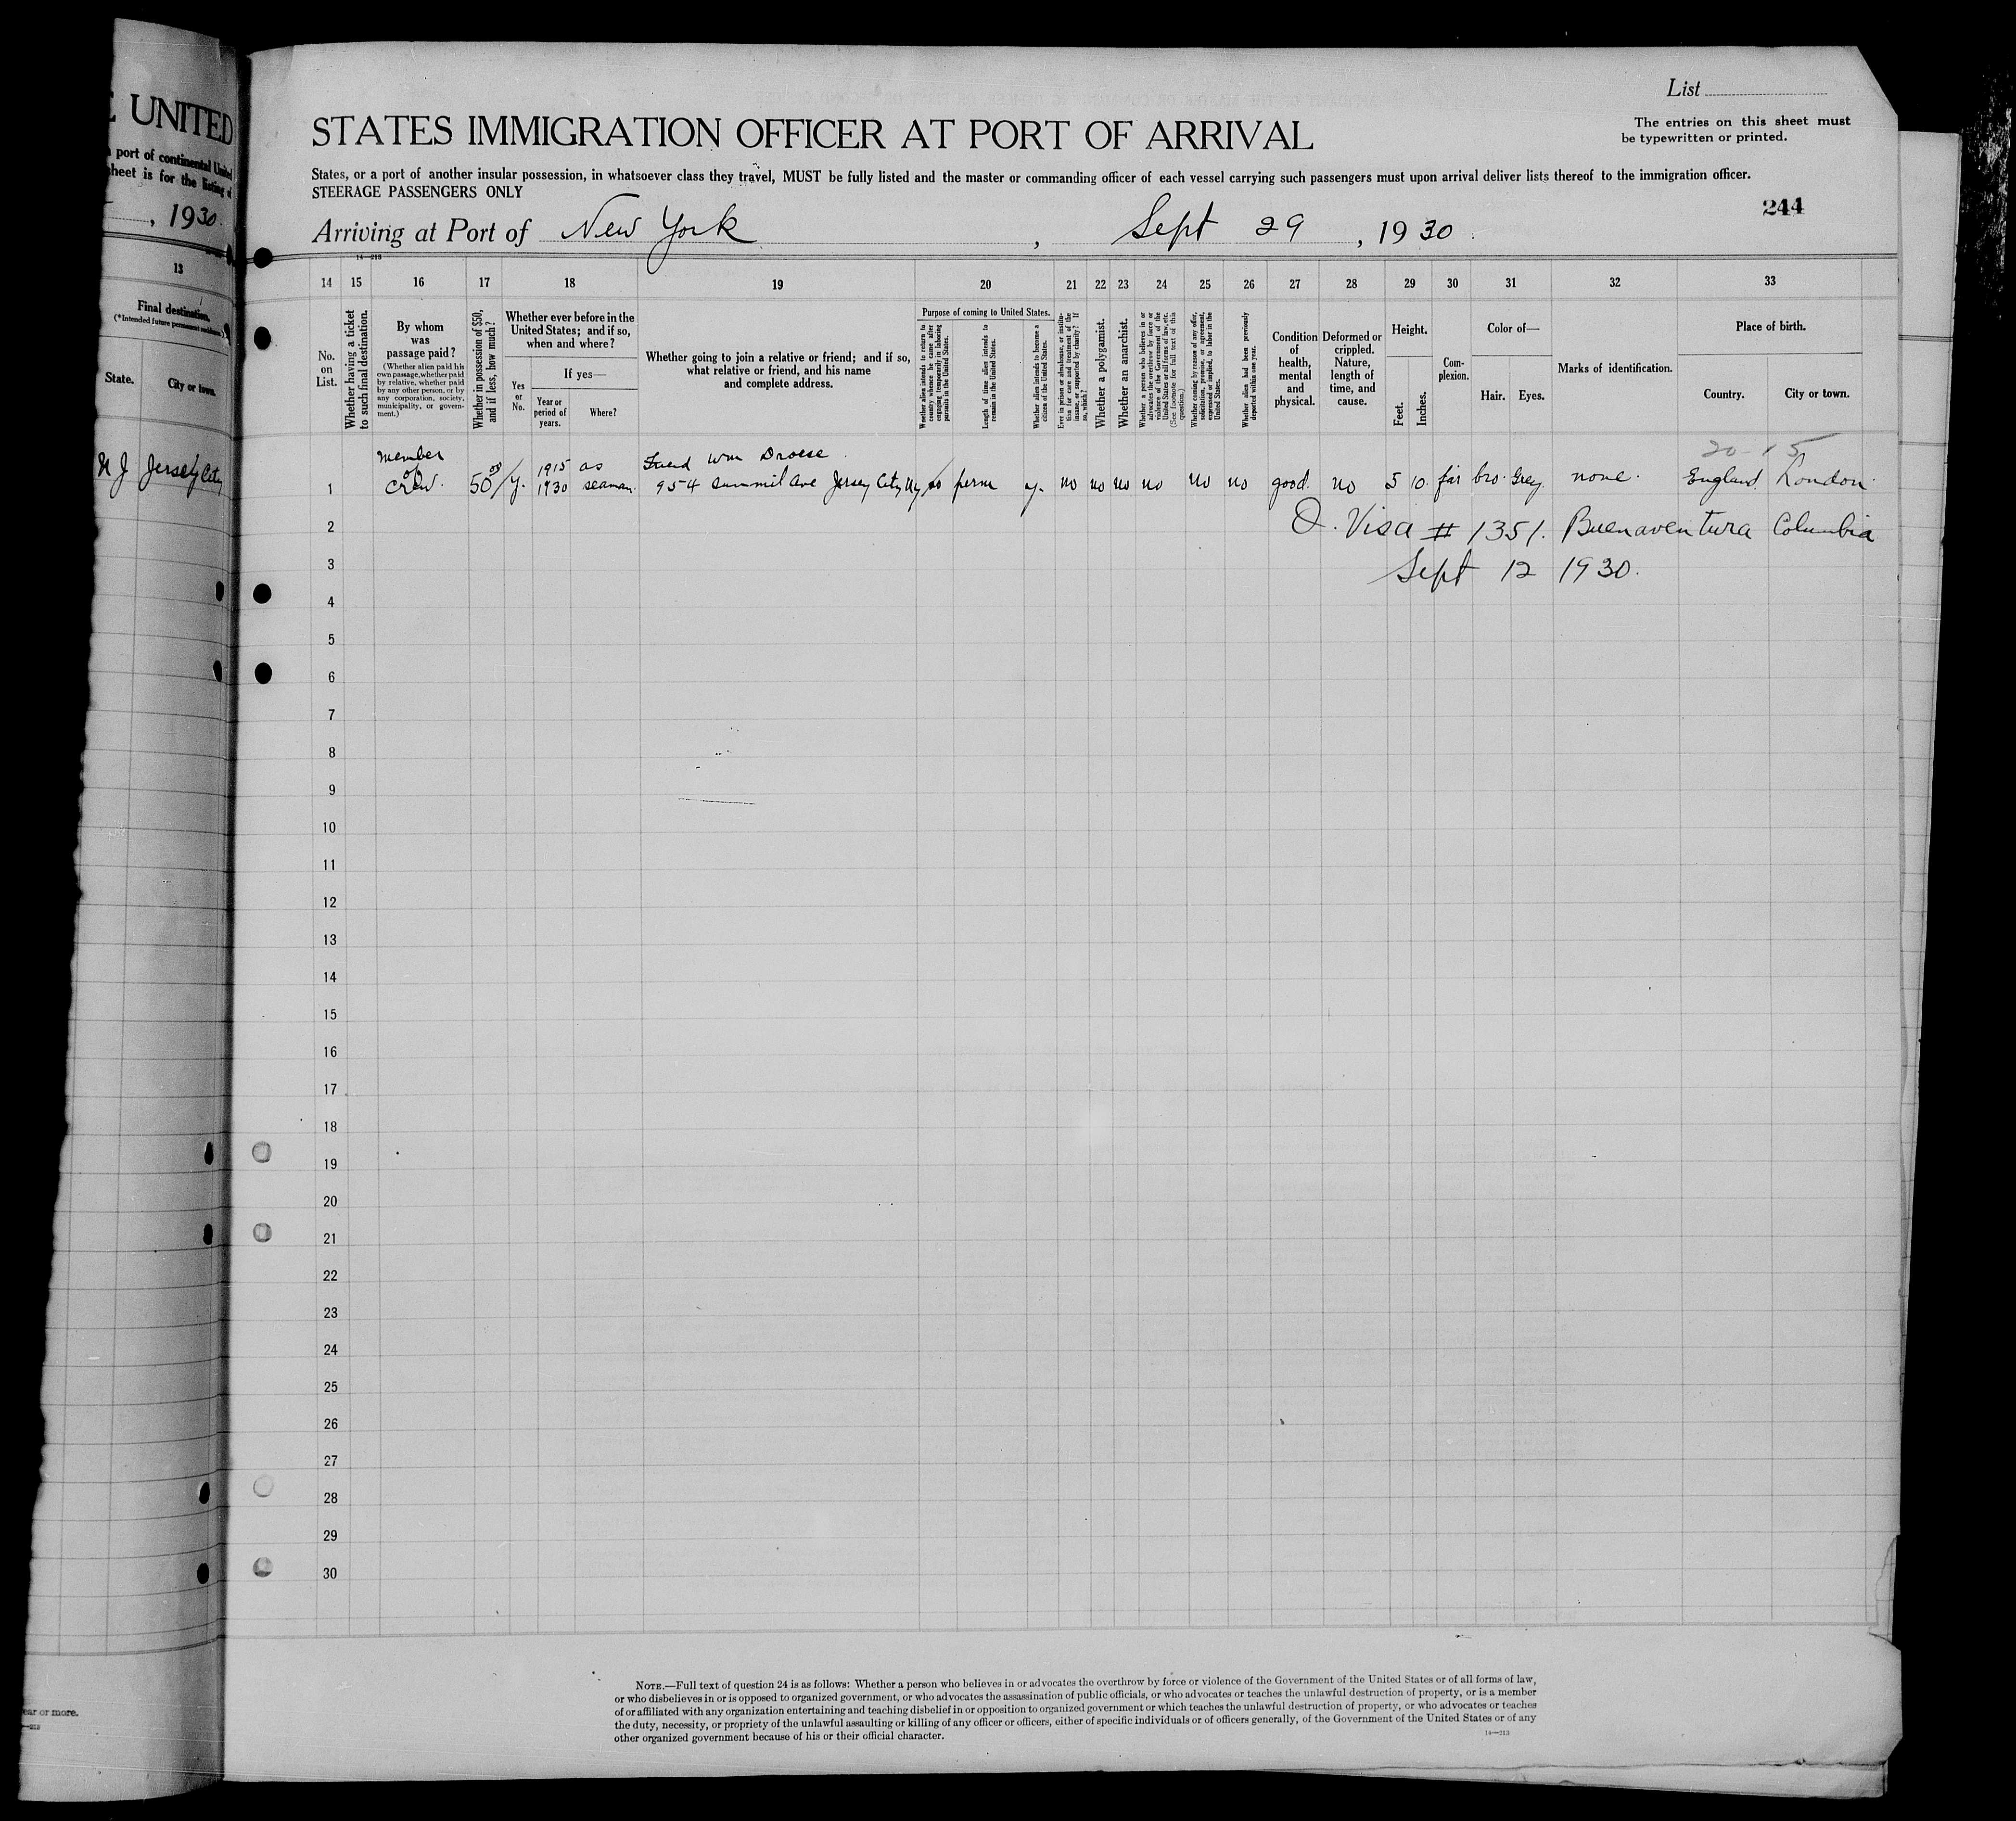 E UNITED
a port of continental United
sheet is for the listing of
, 1930.
13
Final destination.
(*Intended future permanent residence.)
State.
City or town.
N J Jersey City
ear or more.
List
STATES IMMIGRATION OFFICER AT PORT OF ARRIVAL
The entries on this sheet must
be typewritten or printed.
States, or a port of another insular possession, in whatsoever class they travel, MUST be fully listed and the master or commanding officer of each vessel carrying such passengers must upon arrival deliver lists thereof to the immigration officer.
STEERAGE PASSENGERS ONLY
244
Arriving at Port of New York , Sept 29 , 1930.
14—213
14 15 16 17 18 19 20 21 22 23 24 25 26 27 28 29 30 31 32 33
No.
on
List.
Whether having a ticket
to such final destination.
By whom
was
passage paid?
(Whether alien paid his
own passage, whether paid
by relative, whether paid
by any other person, or by
any corporation, society,
municipality, or govern-
ment.)
Whether in possession of $50,
and if less, how much?
Whether ever before in the
United States; and if so,
when and where?
Yes
or
No.
If yes—
Year or
period of
years.
Where?
Whether going to join a relative or friend; and if so,
what relative or friend, and his name
and complete address.
Purpose of coming to United States.
Whether alien intends to return to
country whence he came after
engaging temporarily in laboring
pursuits in the United States.
Length of time alien intends to
remain in the United States.
Whether alien intends to become a
citizen of the United States.
Ever in prison or almshouse, or institu-
tion for care and treatment of the
insane, or supported by charity? If
so, which?
Whether a polygamist.
Whether an anarchist.
Whether a person who believes in or
advocates the overthrow by force or
violence of the Government of the
United States or all forms of law, etc.
(See footnote for full text of this
question.)
Whether coming by reason of any offer,
solicitation, promise, or agreement,
expressed or implied, to labor in the
United States.
Whether alien had been previously
deported within one year.
Condition
of
health,
mental
and
physical.
Deformed or
crippled.
Nature,
length of
time, and
cause.
Height.
Feet.
Inches.
Com-
plexion.
Color of—
Hair.
Eyes.
Marks of identification.
Place of birth.
Country.
City or town.
20-15
member 1915 as Friend Wm Droese
of
1 crew. 50 00/ y. 1930 seaman. 954 Summit Ave Jersey City NJ no perm y. no no no no no no good. no 5 10. fair bro. Grey. none. England. London.
2 Q. Visa # 1351. Buenaventura Columbia
3 Sept 12 1930.
4
5
6
7
8
9
10
11
12
13
14
15
16
17
18
19
20
21
22
23
24
25
26
27
28
29
30
NOTE.—Full text of question 24 is as follows: Whether a person who believes in or advocates the overthrow by force or violence of the Government of the United States or of all forms of law,
or who disbelieves in or is opposed to organized government, or who advocates the assassination of public officials, or who advocates or teaches the unlawful destruction of property, or is a member
of or affiliated with any organization entertaining and teaching disbelief in or opposition to organized government or which teaches the unlawful destruction of property, or who advocates or teaches
the duty, necessity, or propriety of the unlawful assaulting or killing of any officer or officers, either of specific individuals or of officers generally, of the Government of the United States or of any
other organized government because of his or their official character.
14—213